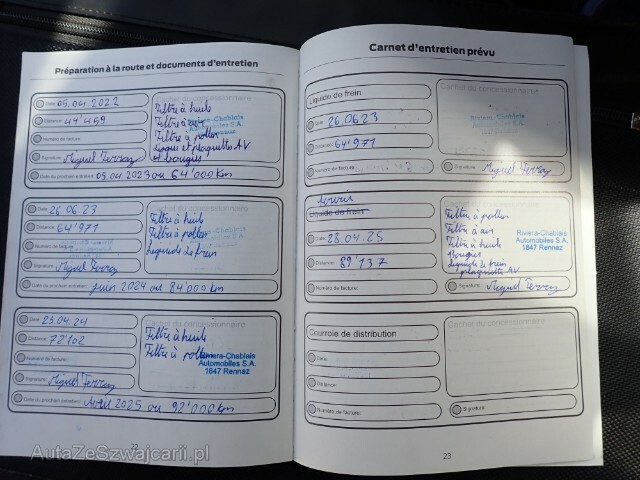 Préparation à la route et documents d'entretien
Date: 05.04.2022
Distance: 44'459
Numéro de facture:
Signature: Miguel Ferraz
Date du prochain entretien: 05.04.2023 ou 64'000 Km
Cachet du concessionnaire
Filtre à huile
Filtre à air
Filtre à pollen
plaquette AV
et bougies
Date: 26.06.23
Distance: 64'971
Numéro de facture:
Signature: Miguel Ferraz
Date du prochain entretien: juin 2024 ou 84'000 Km
Cachet du concessionnaire
Filtre à huile
Filtre à pollen
Liquide de frein
Date: 23.04.24
Distance: 72'102
Numéro de facture:
Signature: Miguel Ferraz
Date du prochain entretien: Avril 2025 ou 92'000 Km
Cachet du concessionnaire
Filtre à huile
Filtre à pollen
Riviera-Chablais
Automobiles S.A.
1847 Rennaz
22
Carnet d'entretien prévu
Liquide de frein
Date: 26.06.23
Distance: 64'971
Numéro de facture:
Cachet du concessionnaire
Riviera-Chablais
Automobiles S.A.
Signature: Miguel Ferraz
Liquide de frein
Date: 28.04.25
Distance: 89'737
Numéro de facture:
Cachet du concessionnaire
Filtre à pollen
Filtre à air
Filtre à huile
Bougies
Liquide de frein
plaquette AV
Riviera-Chablais
Automobiles S.A.
1847 Rennaz
Signature: Miguel Ferraz
Courroie de distribution
Date:
Distance:
Numéro de facture:
Cachet du concessionnaire
Signature:
23
AutaZeSzwajcarii.pl